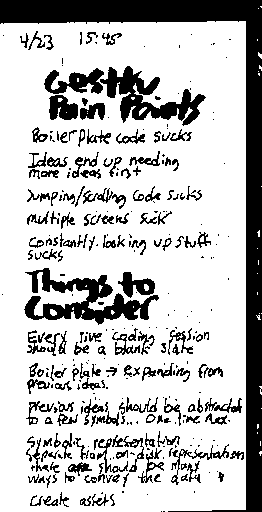 4/23 15:45
Gestku
Pain Points
Boilerplate code sucks
Ideas end up needing
more ideas first
Jumping/scrolling code sucks
multiple screens suck
constantly looking up stuff
sucks
Things to
Consider
Every live coding session
should be a blank slate
Boiler plate → expanding from
previous ideas.
previous ideas should be abstracted
to a few symbols... One line max.
Symbolic representation
separate from on-disk representation
there should be many
ways to convey the data
create assets